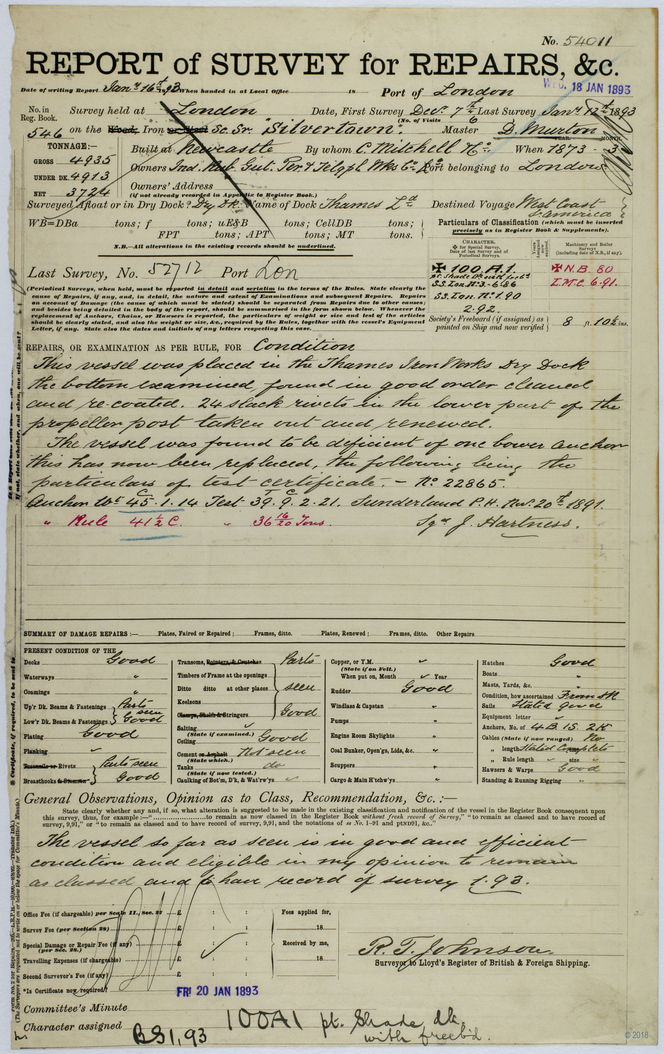 No. 54011
REPORT of SURVEY for REPAIRS, &c.
Date of writing Report Jany 16th 93 When handed in at Local Office 18 Port of London
WED. 18 JAN 1893
No. in Reg. Book. Survey held at London Date, First Survey Decr 7th Last Survey Jany 12th 1893
(No. of Visits 6
546 on the Wood, Iron or Steel Sc. Sr. "Silvertown". Master D. Murton
TONNAGE:— Built at Newcastle By whom C. Mitchell & Co. When 1873 - 3
GROSS 4935
UNDER DK. 4913
NET 3724
Owners Ind. Rub. Gut. Per. & Telgph Wks Co. Ld Port belonging to London
Owners' Address
(if not already recorded in Appendix to Register Book.)
Surveyed Afloat or in Dry Dock? Dry Dk. Name of Dock Thames Ld Destined Voyage West Coast S. America
WB=DBa tons; f tons; uE&B tons; CellDB tons;
FPT tons; APT tons; MT tons.
N.B.—All alterations in the existing records should be underlined.
Particulars of Classification (which must be inserted precisely as in Register Book & Supplements).
CHARACTER.
Machinery and Boiler Surveys (including date of N.B., if any).
✠ 100 A.1.
S.S. Lon. No. 3 - 6.86
S.S. Lon. No. 1. 90
2.92
✠ N.B. 80
L.M.C. 6.91.
Society's Freeboard (if assigned) as printed on Ship and now verified 8 ft 10½ ins.
Last Survey, No. 52712 Port Lon
(Periodical Surveys, when held, must be reported in detail and seriatim in the terms of the Rules. State clearly the
cause of Repairs, if any, and, in detail, the nature and extent of Examinations and subsequent Repairs. Repairs
on account of Damage (the cause of which must be stated) should be separated from Repairs due to other causes;
and besides being detailed in the body of the report, should be summarised in the form shewn below. Whenever the
replacement of Anchors, Chains, or Hawsers is reported, the particulars of weight or size and test of the articles
should be clearly stated, and also the weight or size, &c., required by the Rules, together with the vessel's Equipment
Letter, if any. State also the dates and initials of any letters respecting this case.
REPAIRS, OR EXAMINATION AS PER RULE, FOR Condition
This vessel was placed in the Thames Iron Works Dry Dock
the bottom examined, found in good order cleaned
and re-coated. 24 slack rivets in the lower part of the
propeller post taken out and renewed.
The vessel was found to be deficient of one bower anchor
this has now been replaced, the following being the
particulars of test certificate. - No 22865.
Anchor Wt 45.1.14 Test 39.9.2.21. Sunderland P.H. Nov. 20th 1891.
" Rule 41½ C. " 36 16/20 Tons. Sgd J. Hartness.
SUMMARY OF DAMAGE REPAIRS:— Plates, Faired or Repaired; Frames, ditto. Plates, Renewed; Frames, ditto. Other Repairs
PRESENT CONDITION OF THE
Decks Good
Waterways "
Coamings "
Up'r Dk. Beams & Fastenings Parts seen
Low'r Dk. Beams & Fastenings Good
Plating Good
Planking "
Treenails or Rivets Parts seen
Breasthooks & Pointers Good
Transoms, Pointers, & Crutches Parts
Timbers of Frame at the openings
Ditto ditto at other places seen
Keelsons
Clamps, Shelfs & Stringers Good
Salting "
(State if examined.)
Ceiling Good
Cement or Asphalt Not seen
(State which.)
Tanks do
(State if now tested.)
Caulking of Bot'm, D'k, & Wat'rw'ys "
Copper, or Y.M. "
(State if on Felt.)
When put on, Month " Year
Rudder Good
Windlass & Capstan "
Pumps "
Engine Room Skylights "
Coal Bunker, Open'gs, Lids, &c. "
Scuppers "
Cargo & Main H'tchw'ys "
Hatches Good
Boats "
Masts, Yards, &c. "
Condition, how ascertained From dk
Sails Stated good
Equipment letter "
Anchors, No. of 4B. 1S. 2K
Cables (State if now ranged) No
" length Stated Complete
" Rule length " size "
Hawsers & Warps Good
Standing & Running Rigging "
General Observations, Opinion as to Class, Recommendation, &c.:—
State clearly whether any and, if so, what alteration is suggested to be made in the existing classification and notification of the vessel in the Register Book consequent upon
The vessel so far as seen is in good and efficient
condition and eligible in my opinion to remain
as classed and to have record of survey 1.93.
Office Fee (if chargeable) per Scale II., Sec. 27 £ : :
Survey Fee (per Section 28) £ : :
Special Damage or Repair Fee (if any) (per Sec. 28.) £ : :
Travelling Expenses (if chargeable) £ : :
Second Surveyor's Fee (if any) £ : :
Fees applied for, 18
Received by me, 18
R. T. Johnson.
Surveyor to Lloyd's Register of British & Foreign Shipping.
*Is Certificate now required?
FRI 20 JAN 1893
Committee's Minute
Character assigned
BS 1,93 100A1 pt. Shade dk.
with freebd.
© 2018